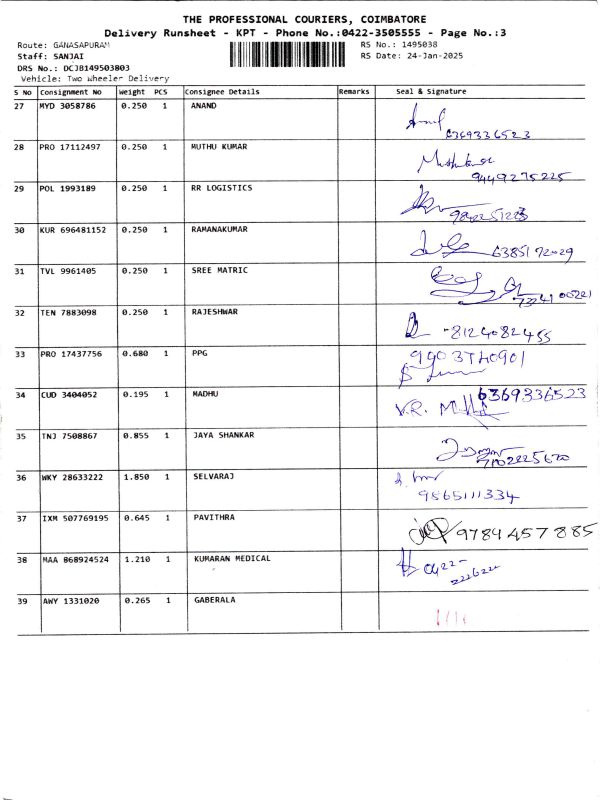 THE PROFESSIONAL COURIERS, COIMBATORE
Delivery Runsheet - KPT - Phone No.:0422-3505555 - Page No.:3
Route: GANASAPURAM RS No.: 1495038
Staff: SANJAI RS Date: 24-Jan-2025
DRS No.: DCJB149503803
Vehicle: Two Wheeler Delivery
S No Consignment No Weight PCS Consignee Details Remarks Seal & Signature
27 MYD 3058786 0.250 1 ANAND
6369336523
28 PRO 17112497 0.250 1 MUTHU KUMAR
9449275225
29 POL 1993189 0.250 1 RR LOGISTICS
30 KUR 696481152 0.250 1 RAMANAKUMAR
6385172029
31 TVL 9961405 0.250 1 SREE MATRIC
32 TEN 7883098 0.250 1 RAJESHWAR
-8124082455
33 PRO 17437756 0.680 1 PPG
9903740901
34 CUD 3404052 0.195 1 MADHU
6369336523
V.R.
35 TNJ 7508867 0.855 1 JAYA SHANKAR
36 WKY 28633222 1.850 1 SELVARAJ
9865111334
37 IXM 507769195 0.645 1 PAVITHRA
9784457885
38 MAA 868924524 1.210 1 KUMARAN MEDICAL
0422-
222622
39 AWY 1331020 0.265 1 GABERALA